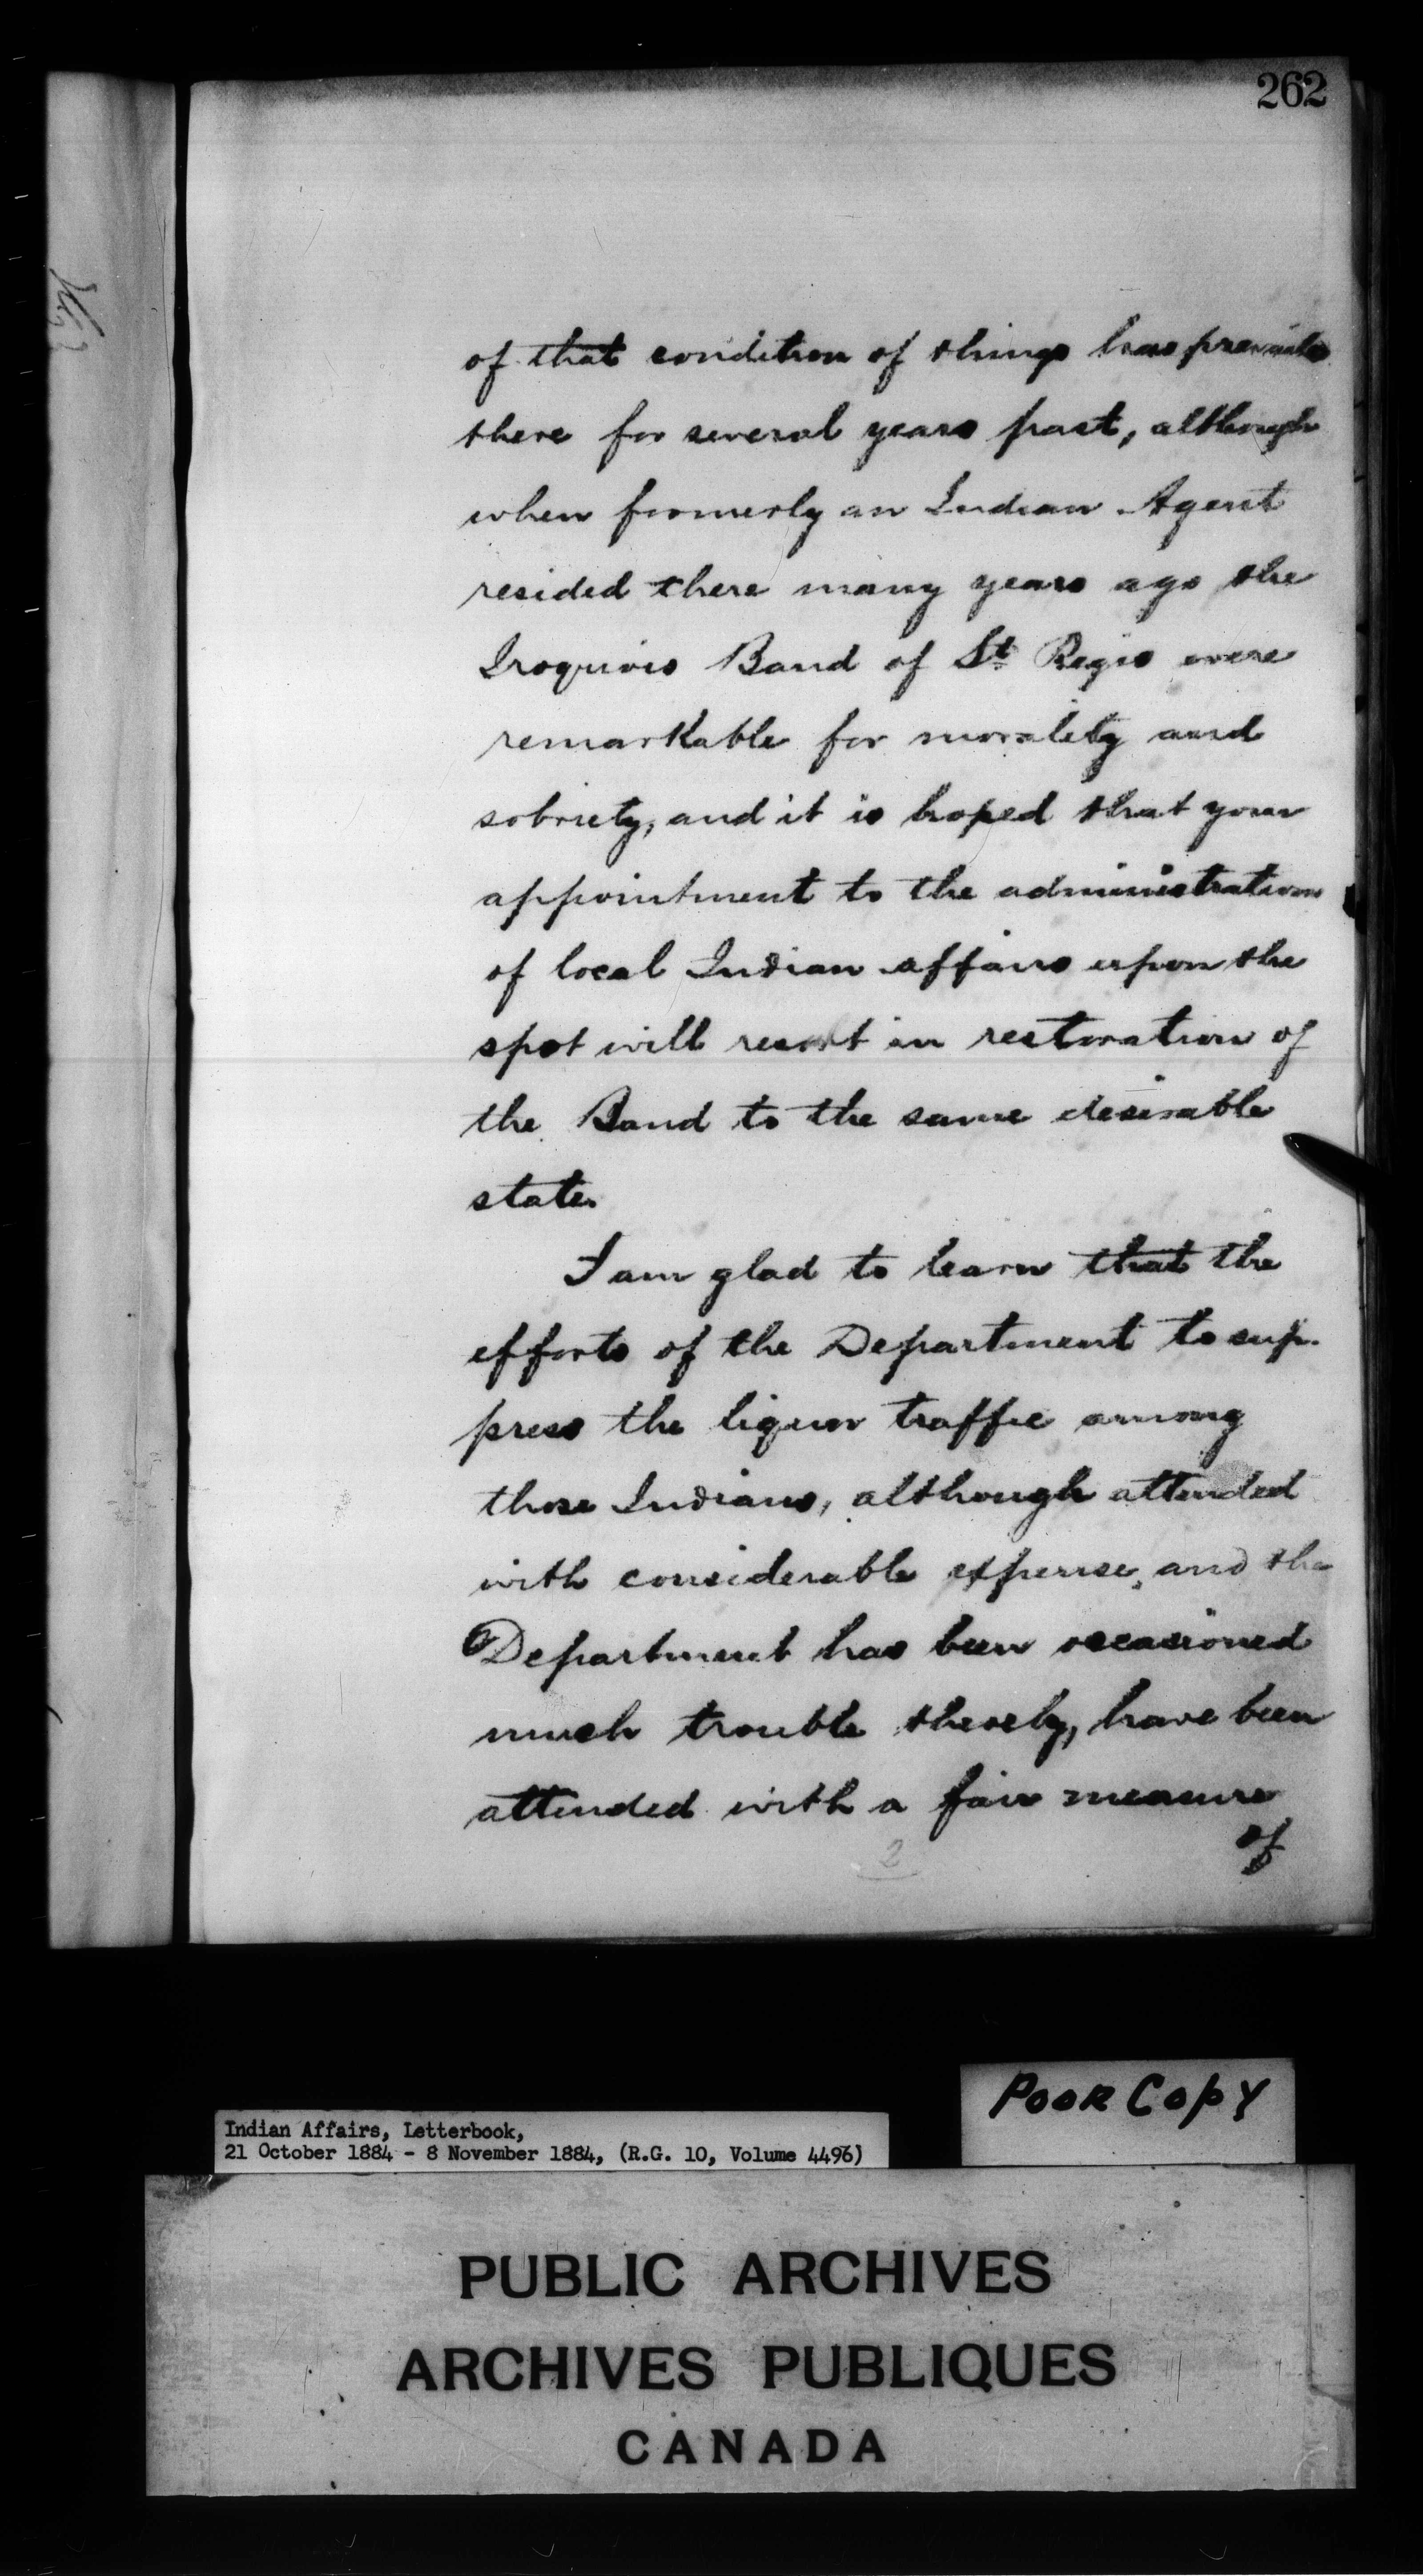 262
of that condition of things has prevailed
there for several years past, although
when formerly an Indian Agent
resided there many years ago the
Iroquois Band of St Regis were
remarkable for morality and
sobriety, and it is hoped that your
appointment to the administration
of local Indian affairs upon the
spot will result in restoration of
the Band to the same desirable
state.
I am glad to learn that the
efforts of the Department to sup-
press the liquor traffic among
those Indians, although attended
with considerable expense, and the
Department has been occasioned
much trouble thereby, have been
attended with a fair measure
of
2
POOR COPY
Indian Affairs, Letterbook,
21 October 1884 - 8 November 1884, (R.G. 10, Volume 4496)
PUBLIC ARCHIVES
ARCHIVES PUBLIQUES
CANADA